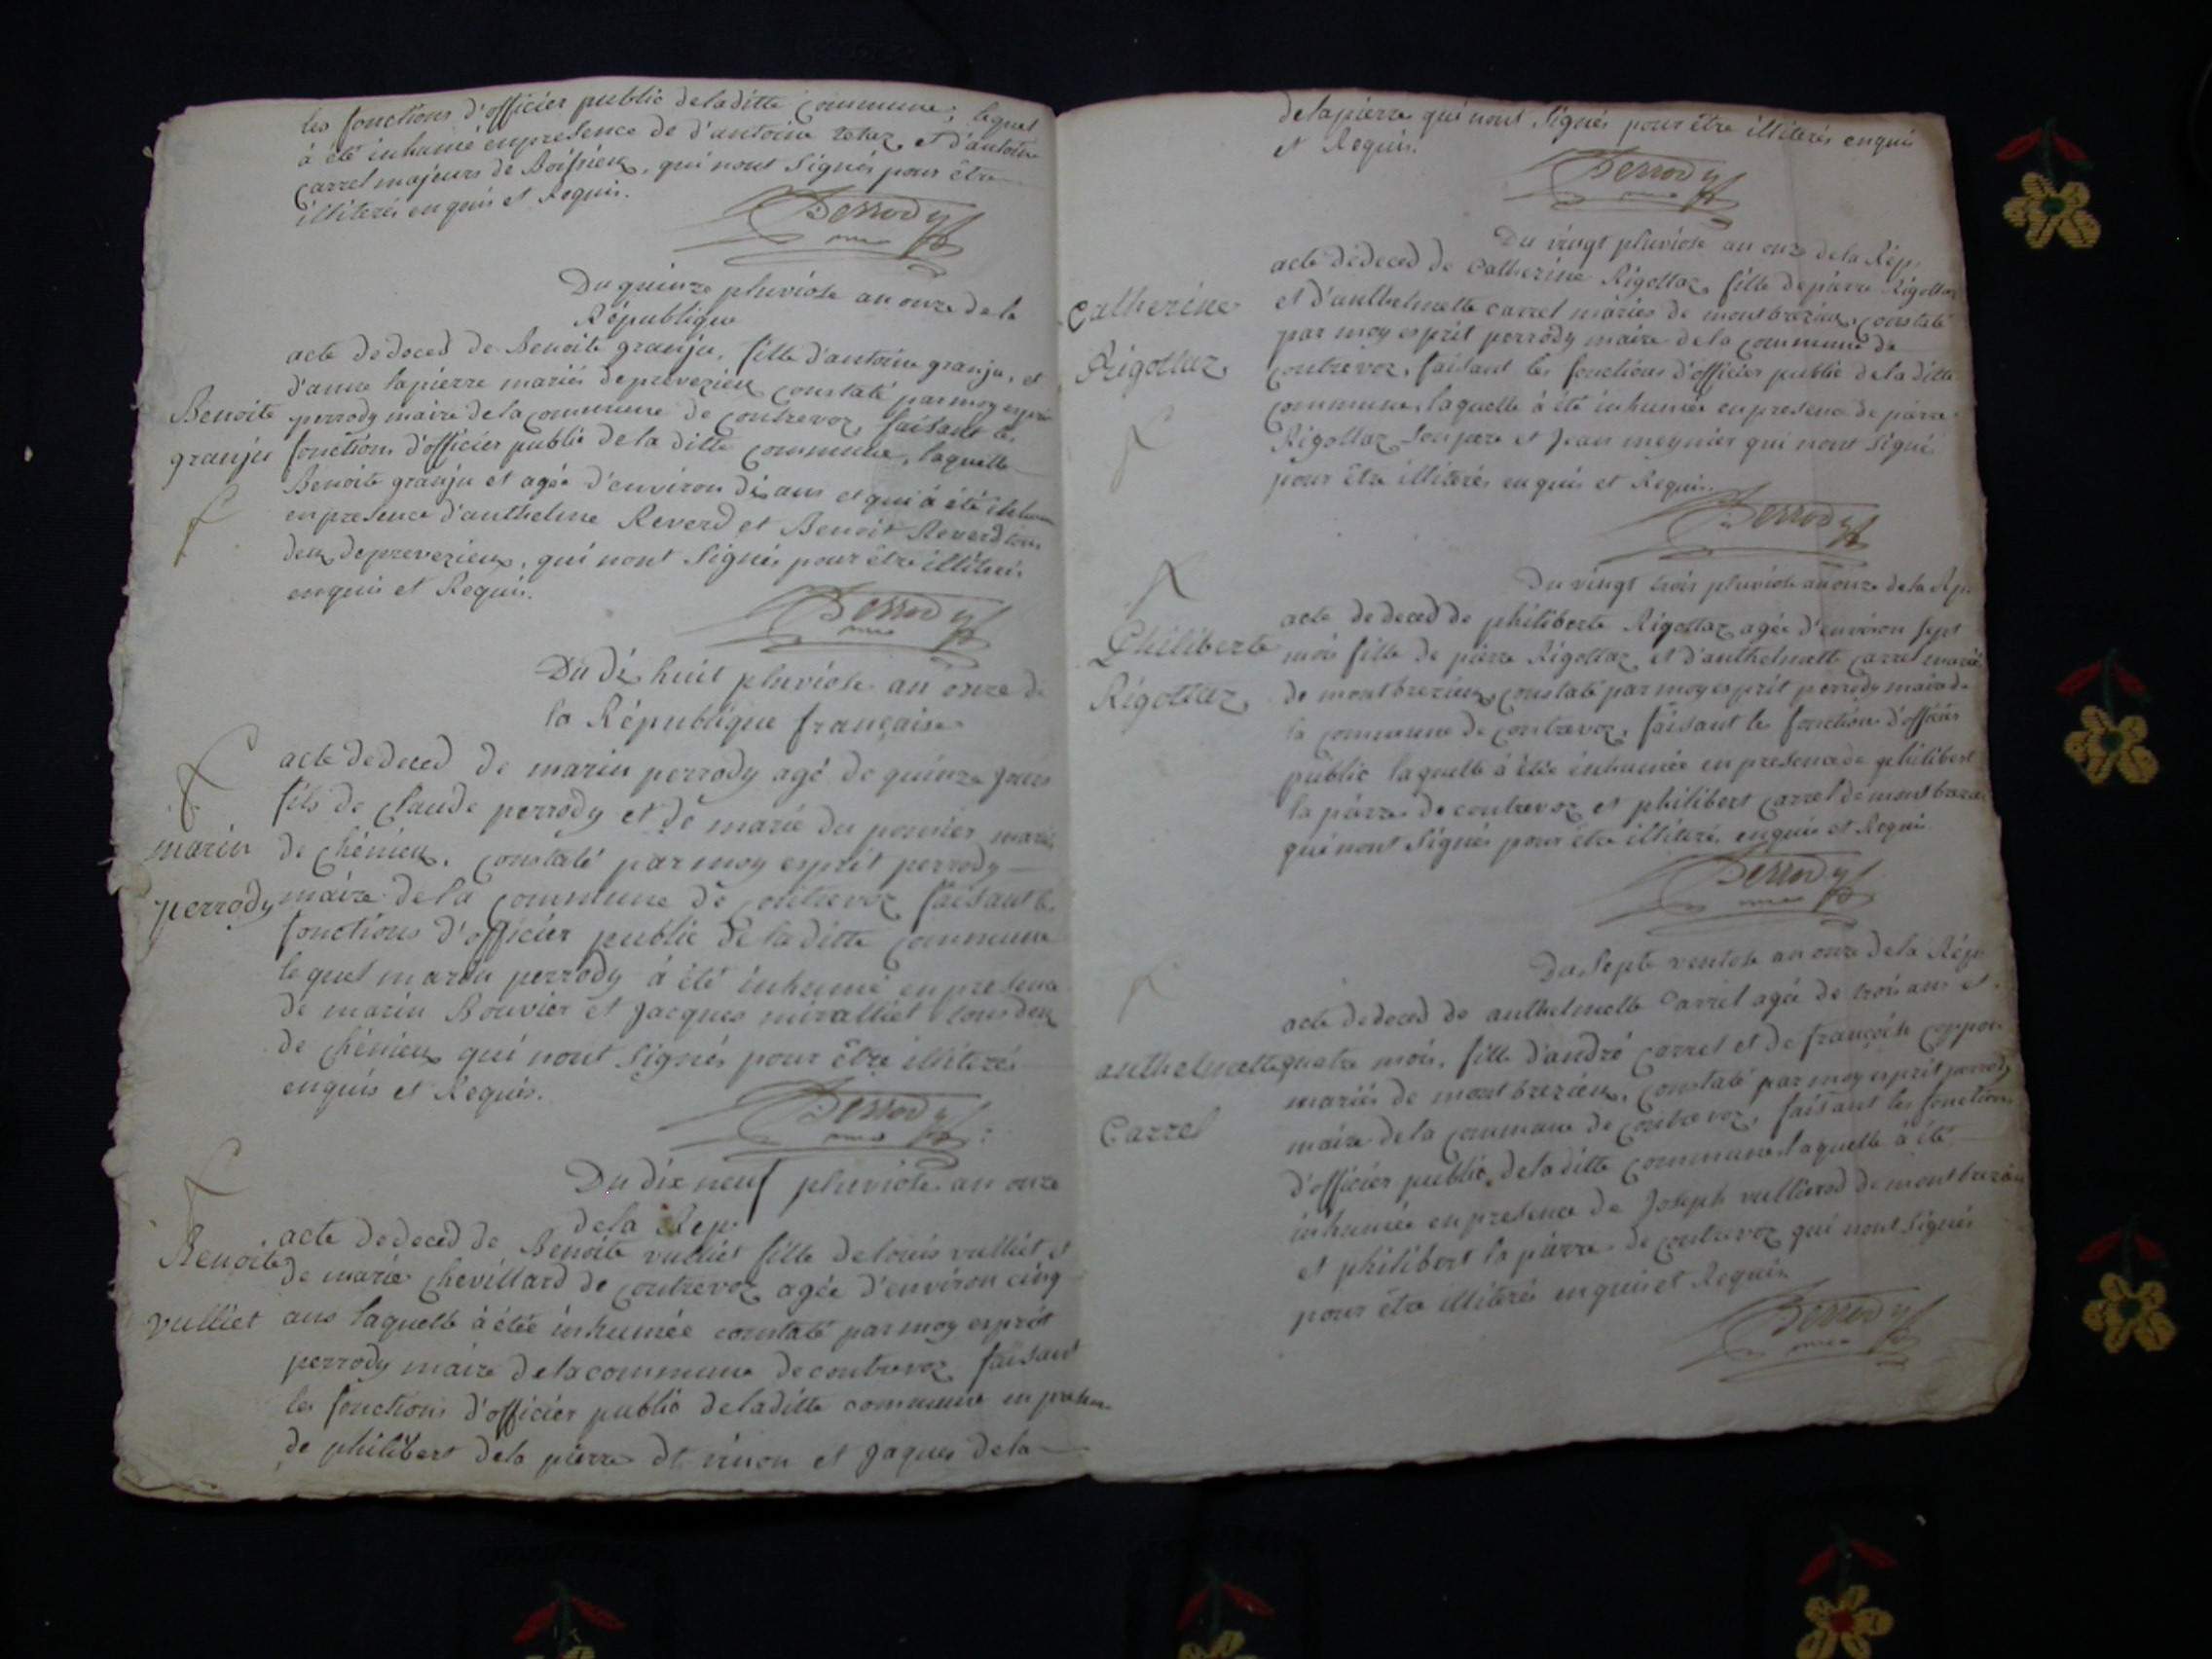 les fonctions d'officier public deladitte commune; lequel
à été inhumé enpresence de d'antoine rotaz et d'antoine
carrel majeurs de Boissieux, qui nont signés pour être
illiterés enquis et Requis.
Perrody
Du quinze pluviose an onze dela
République
acte dedeced de Benoite granju, fille d'antoine granju, et
d'anne lapierre mariés deprevezieux constaté parmoy esprit
Benoite
granju
perrody maire dela commune de contrevoz, faisant les
fonctions d'officier public dela ditte commune, laquelle
Benoite granju et agée d'environ dix ans et qui à été inhumée
enpresence d'anthelme Reverd et Benoit Reverd tous
deux deprevezieux, qui nont signés pour être illiterés
enquis et Requis.
Perrody
Du dix huit pluviose an onze de
la République française
acte dedeced de marin perrody agé de quinze jours
fils de claude perrody et de marie du mariés
marin
perrody
de chémieux, constaté par moy esprit perrody
maire dela commune de contrevoz faisant les
fonctions d'officier public de la ditte commune
lequel marin perrody à été inhumé enpresence
de marin Bouvier et jacques miralliet tous deux
de chémieux qui nont signés pour être illiterés
enquis et Requis.
Perrody
Du dix neuf pluviose an onze
dela Rep.
Benoite
vulliet
acte dedeced de Benoite vulliet fille delouis vulliet et
de marie chevillard de contrevoz agée d'environ cinq
ans laquelle à étée inhumée constaté parmoy esprit
perrody maire delacommune decontrevoz faisant
les fonctions d'officier public deladitte commune en presence
de philibert dela pierre dt et jaques dela
delapierre qui nont signés pour être illiterés enquis
et Requis.
Perrody
Du vingt pluviose an onze dela Rép.
catherine
Rigollaz
acte dedeced de catherine Rigollaz fille depierre Rigollaz
et d'anthelmette carrel mariés de montbrezieux, constaté
par moy esprit perrody maire dela commune de
contrevoz, faisant les fonctions d'officier public dela ditte
commune, laquelle à été inhumée enpresence de pierre
Rigollaz son pere et jean meynier qui nont signé
pour être illiterés enquis et Requis.
Perrody
Du vingt trois pluviose an onze dela Rép.
Philiberte
Rigollaz
acte dedeced de philiberte Rigollaz agée d'environ sept
mois fille de pierre Rigollaz et d'anthelmette carrel mariés
de montbrezieux, constaté parmoy esprit perrody maire de
la commune de contrevoz, faisant les fonctions d'officier
public laquelle à étée inhumée en presence de philibert
la pierre de contrevoz et philibert carrel de montbrezieux
qui nont signés pour être illiteré, enquis et Requis
Perrody
Du sept ventose an onze dela Rép.
anthelmette
Carrel
acte dedeced de anthelmette Carrel agée de trois ans et
quatre mois, fille d'andré carrel et de françoise
mariés de montbrezieux, constaté par moy esprit perrody
maire dela commune de contrevoz, faisant les fonctions
d'officier public, deladitte commune laquelle à été
inhumée en presence de joseph vullierod de montbrezieux
et philibert la pierre de contrevoz qui nont signés
pour être illiterés enquis et Requis
Perrody